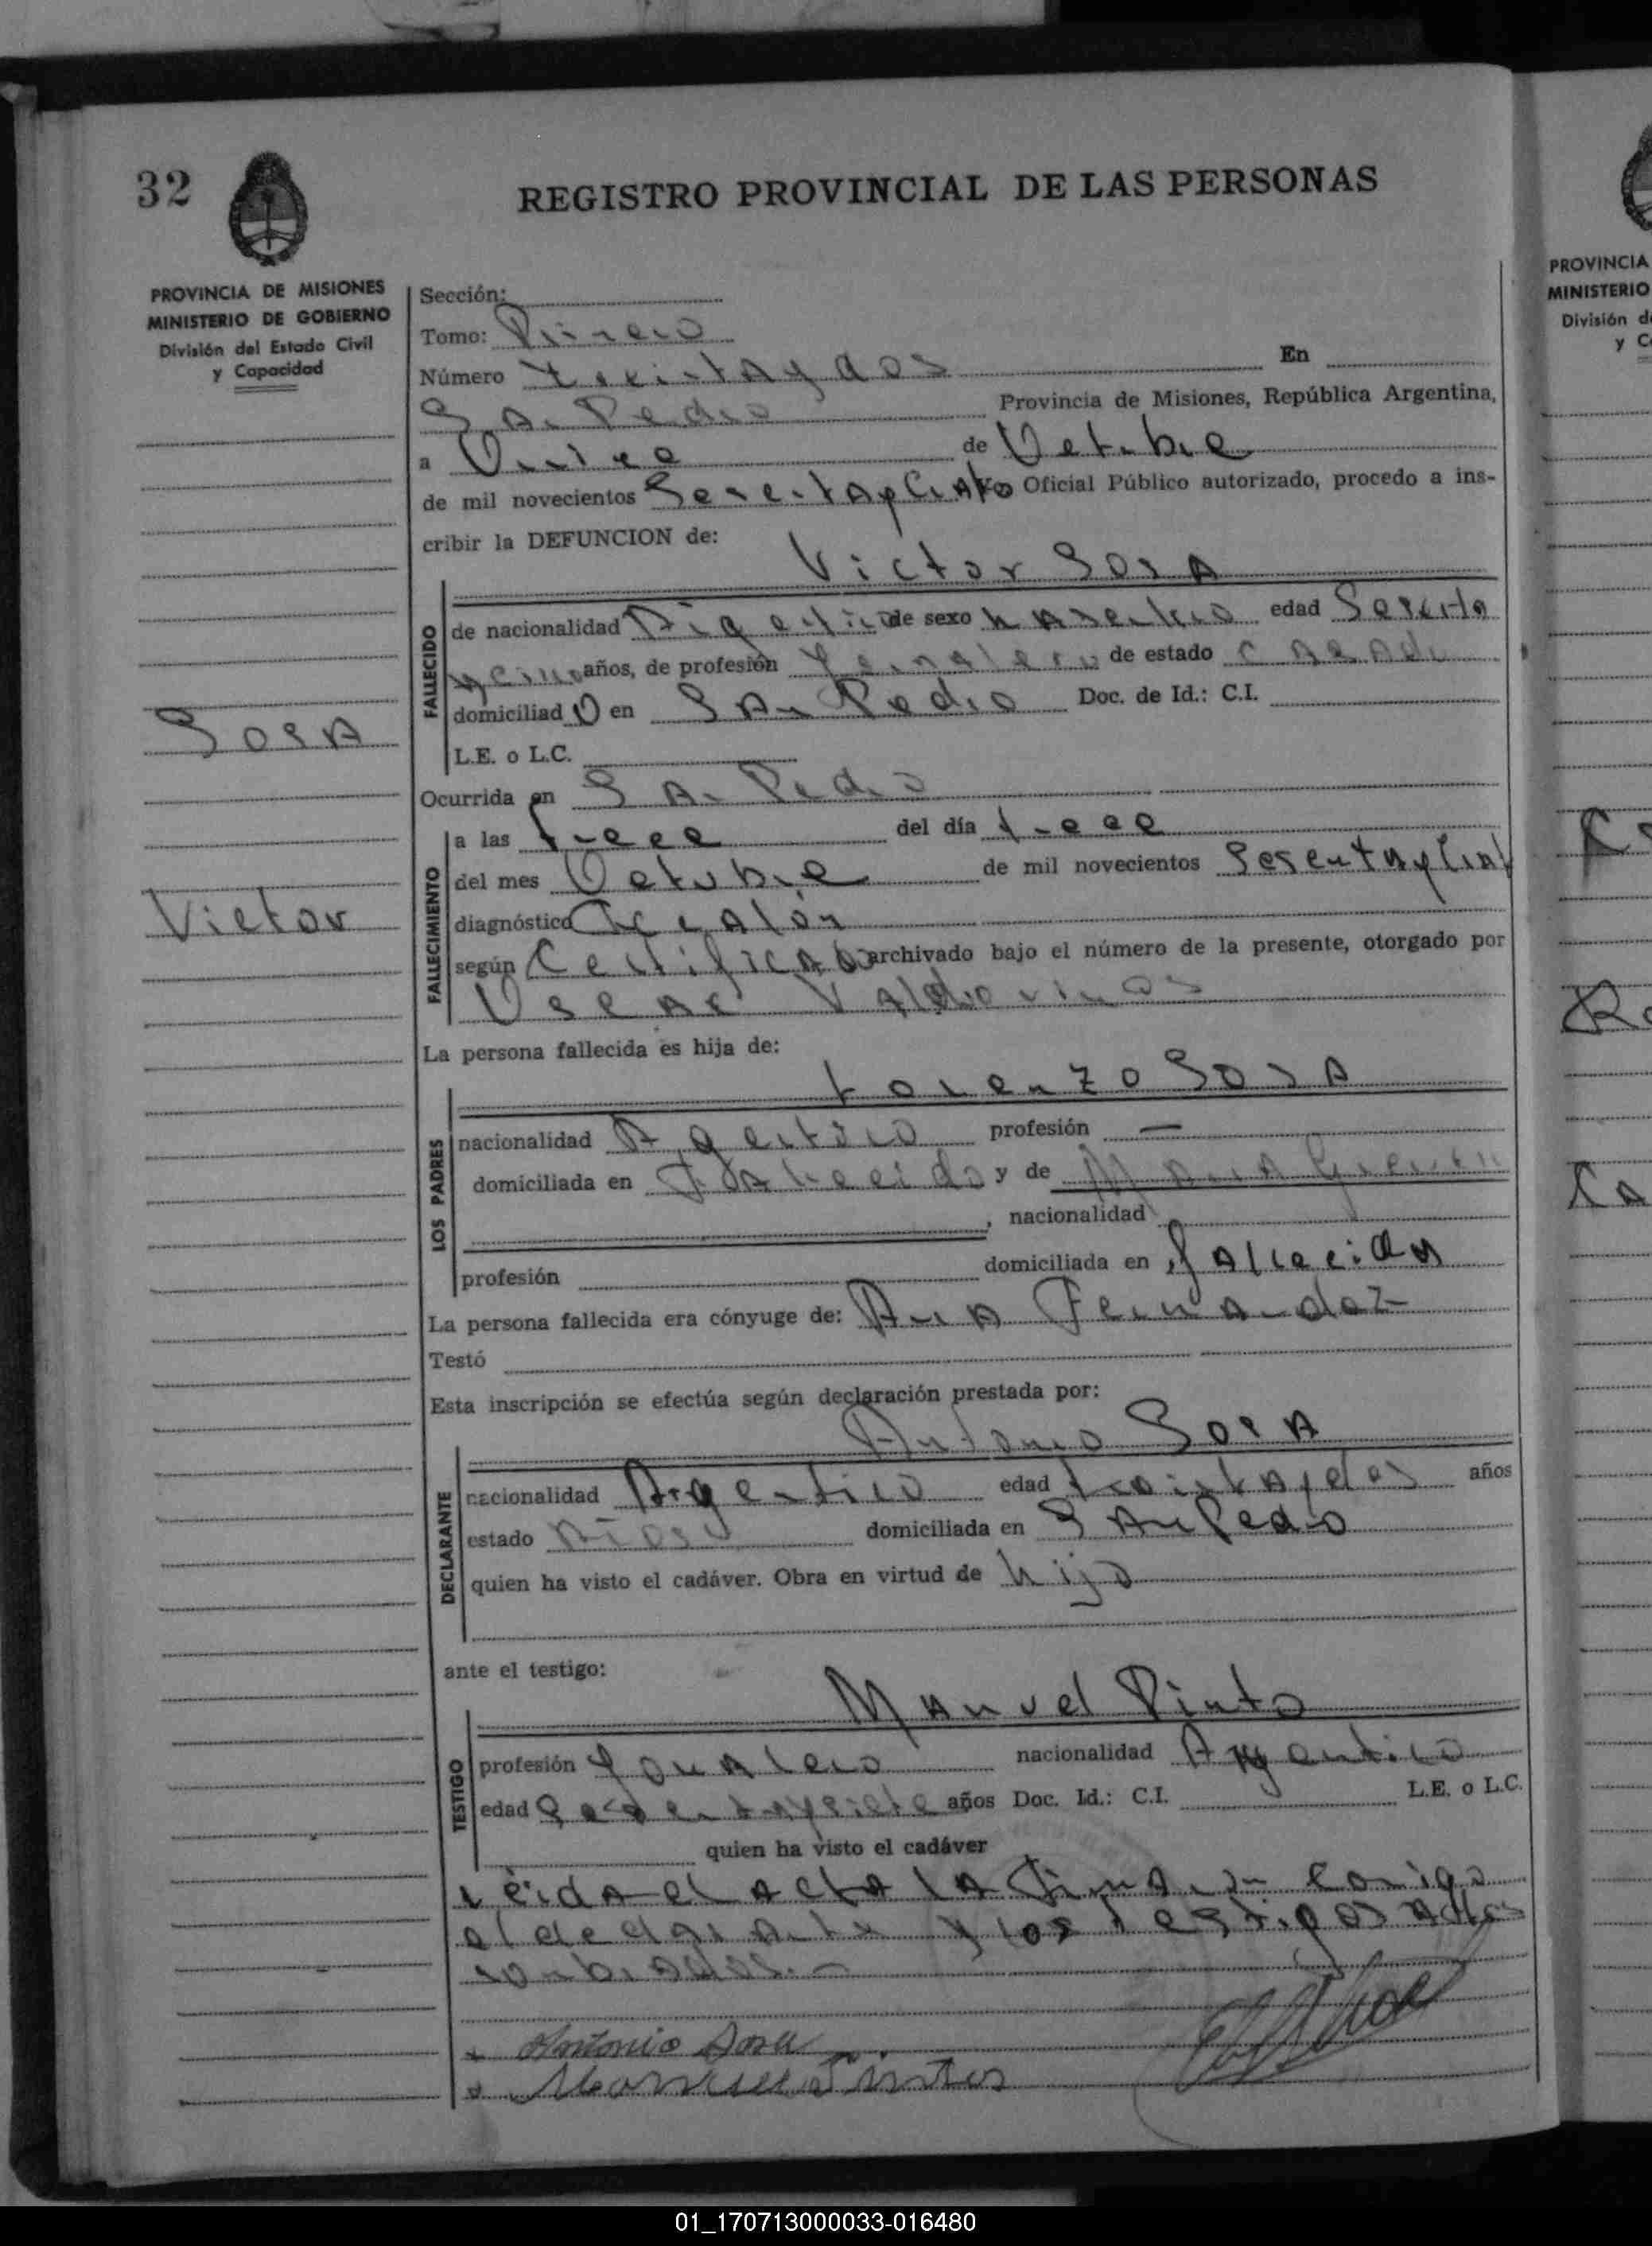 32
REGISTRO PROVINCIAL DE LAS PERSONAS
PROVINCIA DE MISIONES
MINISTERIO DE GOBIERNO
División del Estado Civil
y Capacidad
Sosa
Victor
Sección:
Tomo: Primero
Número treintaydos En
San Pedro Provincia de Misiones, República Argentina,
a de Octubre
de mil novecientos Sesentaycuatro Oficial Público autorizado, procedo a ins-
cribir la DEFUNCION de:
Victor Sosa
FALLECIDO
de nacionalidad Argentino de sexo Masculino edad Sesenta
ycinco años, de profesión Jornalero de estado casado
domiciliad o en San Pedro Doc. de Id.: C.I.
L.E. o L.C.
Ocurrida en San Pedro
FALLECIMIENTO
a las trece del día trece
del mes Octubre de mil novecientos Sesentaycuat
diagnóstico
según Certificado archivado bajo el número de la presente, otorgado por
Oscar Valdovinos
La persona fallecida es hija de:
Lorenzo Sosa
LOS PADRES
nacionalidad Argentino profesión —
domiciliada en Fallecido y de Maria
, nacionalidad
profesión domiciliada en fallecida
La persona fallecida era cónyuge de: Ana Fernandez
Testó
Esta inscripción se efectúa según declaración prestada por:
Antonio Sosa
DECLARANTE
nacionalidad Argentino edad treintaydos años
estado domiciliada en San Pedro
quien ha visto el cadáver. Obra en virtud de hijo
ante el testigo:
Manuel Pinto
TESTIGO
profesión Jornalero nacionalidad Argentino
edad Sesentaysiete años Doc. Id.: C.I. L.E. o L.C.
quien ha visto el cadáver
Leida el acta la firman conmigo
el declarante y los testigos antes
nombrados.-
Antonio Sosa
Manuel Pinto
PROVINCIA
MINISTERIO
División d
y C
01_170713000033-016480